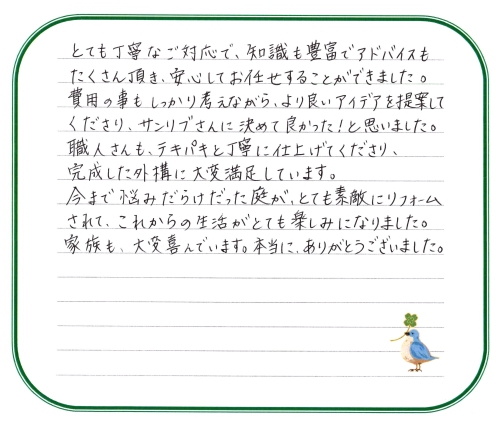 とても丁寧なご対応で、知識も豊富でアドバイスも
たくさん頂き、安心してお任せすることができました。
費用の事もしっかり考えながら、より良いアイデアを提案して
くださり、サンリブさんに決めて良かった!と思いました。
職人さんも、テキパキと丁寧に仕上げてくださり、
完成した外構に大変満足しています。
今まで悩みだらけだった庭が、とても素敵にリフォーム
されて、これからの生活がとても楽しみになりました。
家族も、大変喜んでいます。本当に、ありがとうございました。